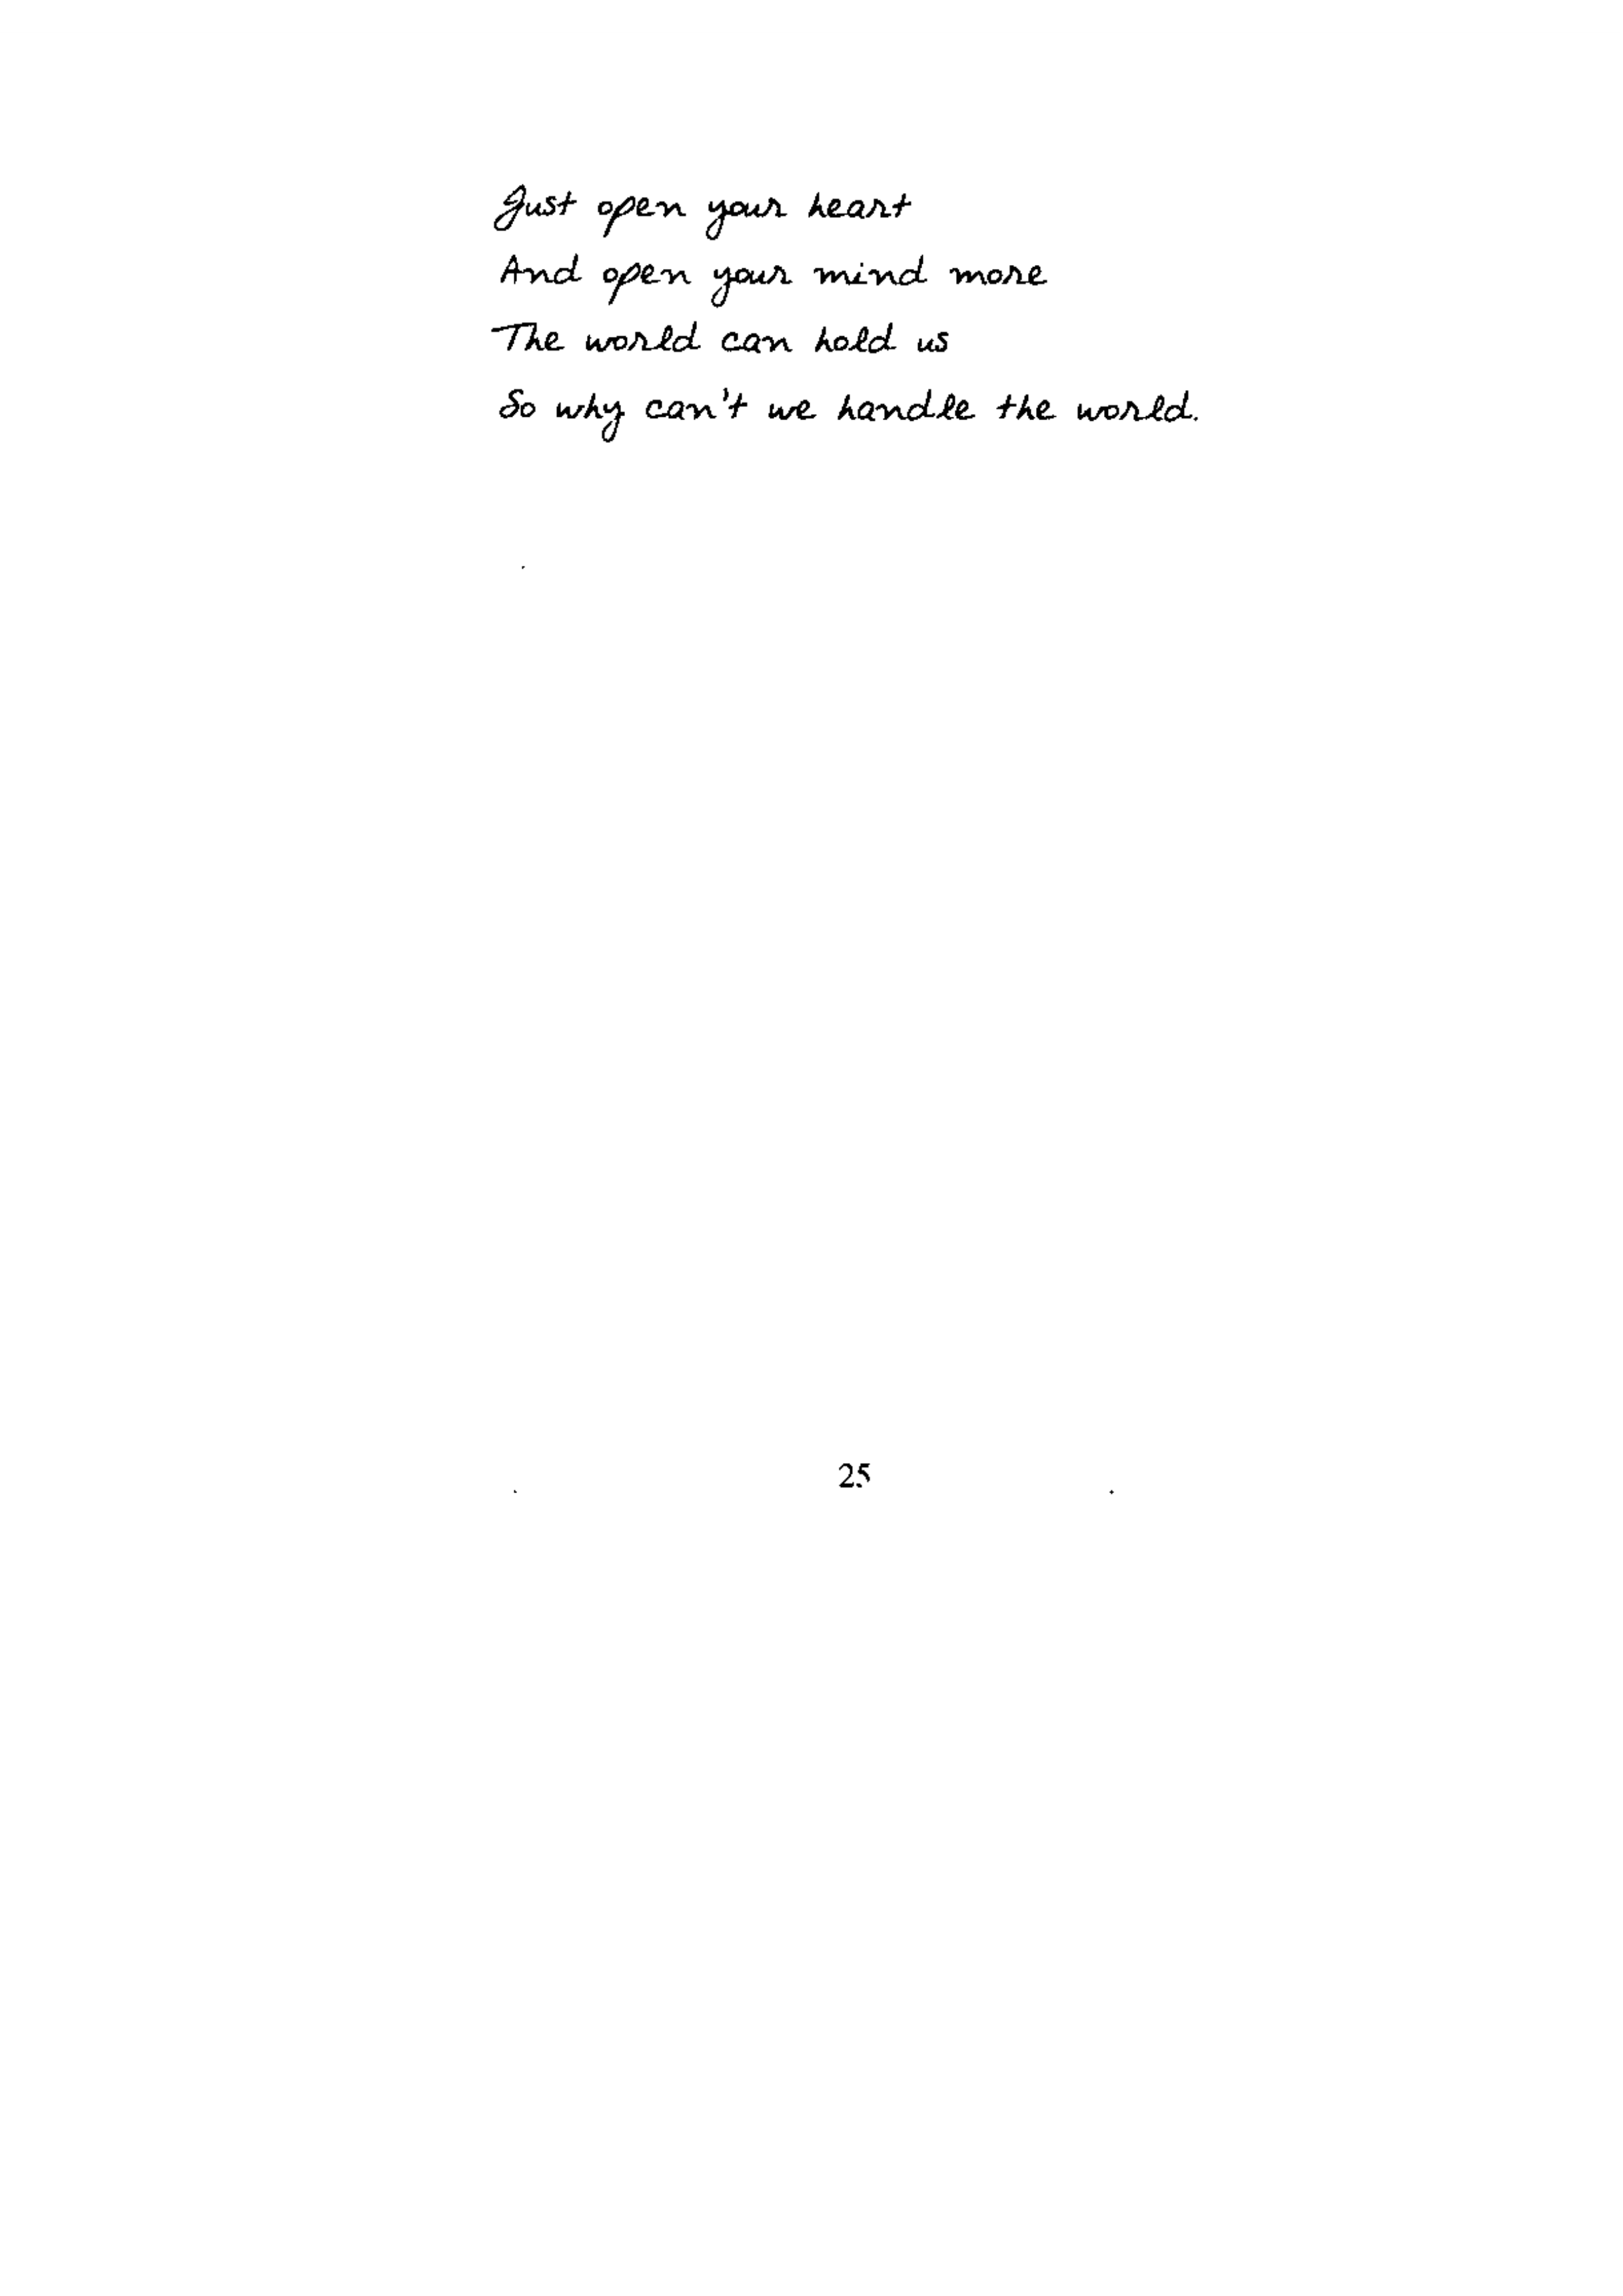 Just open your heart
And open your mind more
The world can hold us
So why can't we handle the world.
25